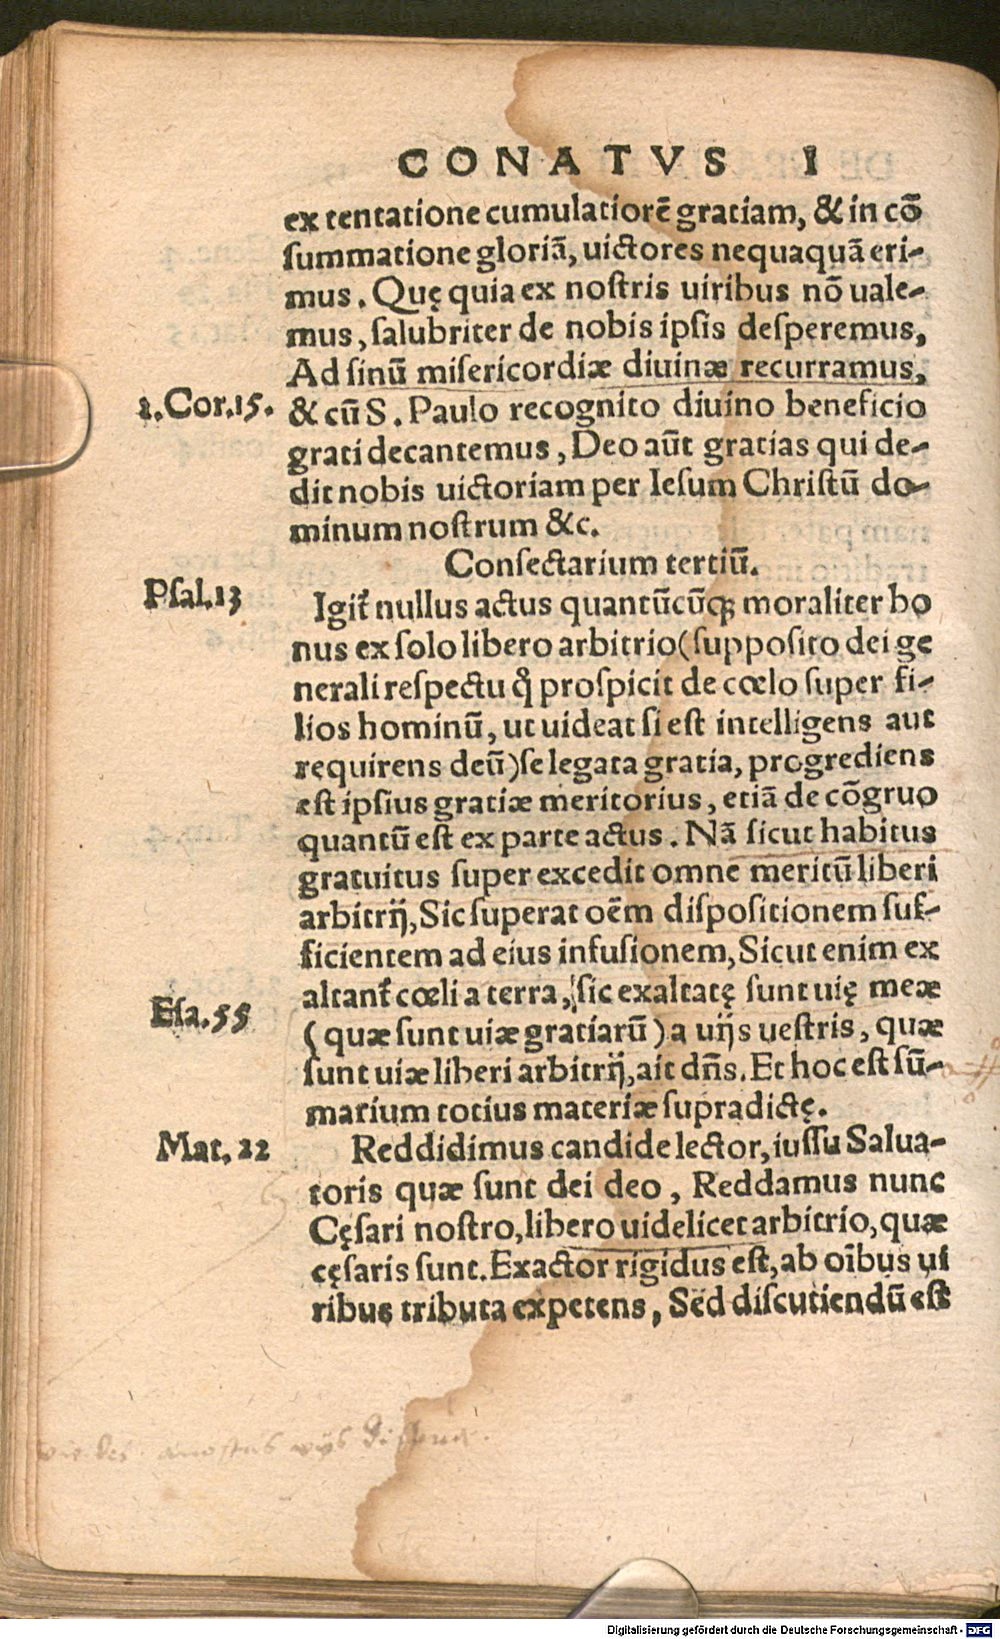 CONATVS I
ex tentatione cumulatiorẽ gratiam, & in cõ
ſummatione gloriã, uictores nequaquã eri-
mus. Quę quia ex noſtris uiribus nõ uale-
mus, ſalubriter de nobis ipſis deſperemus,
Ad ſinũ miſericordiæ diuinæ recurramus,
1.Cor.15. & cũ S. Paulo recognito diuino beneficio
grati decantemus, Deo aũt gratias qui de-
dit nobis uictoriam per Ieſum Chriſtũ do-
minum noſtrum &c.
Conſectarium tertiũ.
Pſal.13 Igit̃ nullus actus quantũcũqꝫ moraliter bo
nus ex ſolo libero arbitrio (ſuppoſito dei ge
nerali reſpectu q̊ proſpicit de cœlo ſuper fi-
lios hominũ, ut uideat ſi eſt intelligens aut
requirens deũ) ſe legata gratia, progrediens
eſt ipſius gratiæ meritorius, etiã de cõgruo
quantũ eſt ex parte actus. Nã ſicut habitus
gratuitus ſuper excedit omne meritũ liberi
arbitrij, Sic ſuperat oẽm diſpoſitionem ſuf-
ficientem ad eius infuſionem, Sicut enim ex
altant̃ cœli a terra, ſic exaltatę ſunt uię meæ
Eſa.55 (quæ ſunt uiæ gratiarũ) a uijs ueſtris, quæ
ſunt uiæ liberi arbitrij, ait dñs. Et hoc eſt ſũ-
marium totius materiæ ſupradictę.
Mat.22 Reddidimus candide lector, iuſſu Salua-
toris quæ ſunt dei deo, Reddamus nunc
Cęſari noſtro, libero uidelicet arbitrio, quæ
cęſaris ſunt. Exactor rigidus eſt, ab oĩbus ui
ribus tributa expetens, Sed diſcutiendũ eſt
Digitalisierung gefördert durch die Deutsche Forschungsgemeinschaft - DFG